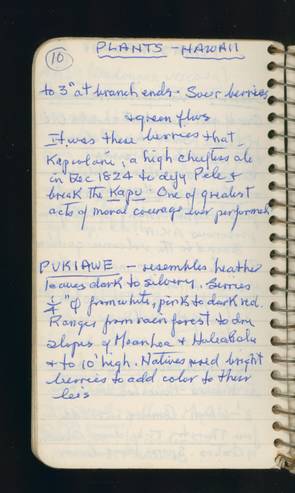 10
PLANTS - HAWAII
to 3" at branch ends. Sour berries
& green flws
It was these berries that
Kapiolani, a high chiefess ate
in Dec 1824 to defy Pele &
break the Kapu. One of greatest
acts of moral courage ever performed
PUKIAWE - resembles heather
leaves dark to silvery. Berries
1/4" φ from white, pink to dark red.
Ranges from rain forest to dry
slopes of Moanloa & Haleakala
& to 10' high. Natives used bright
berries to add color to their
leis